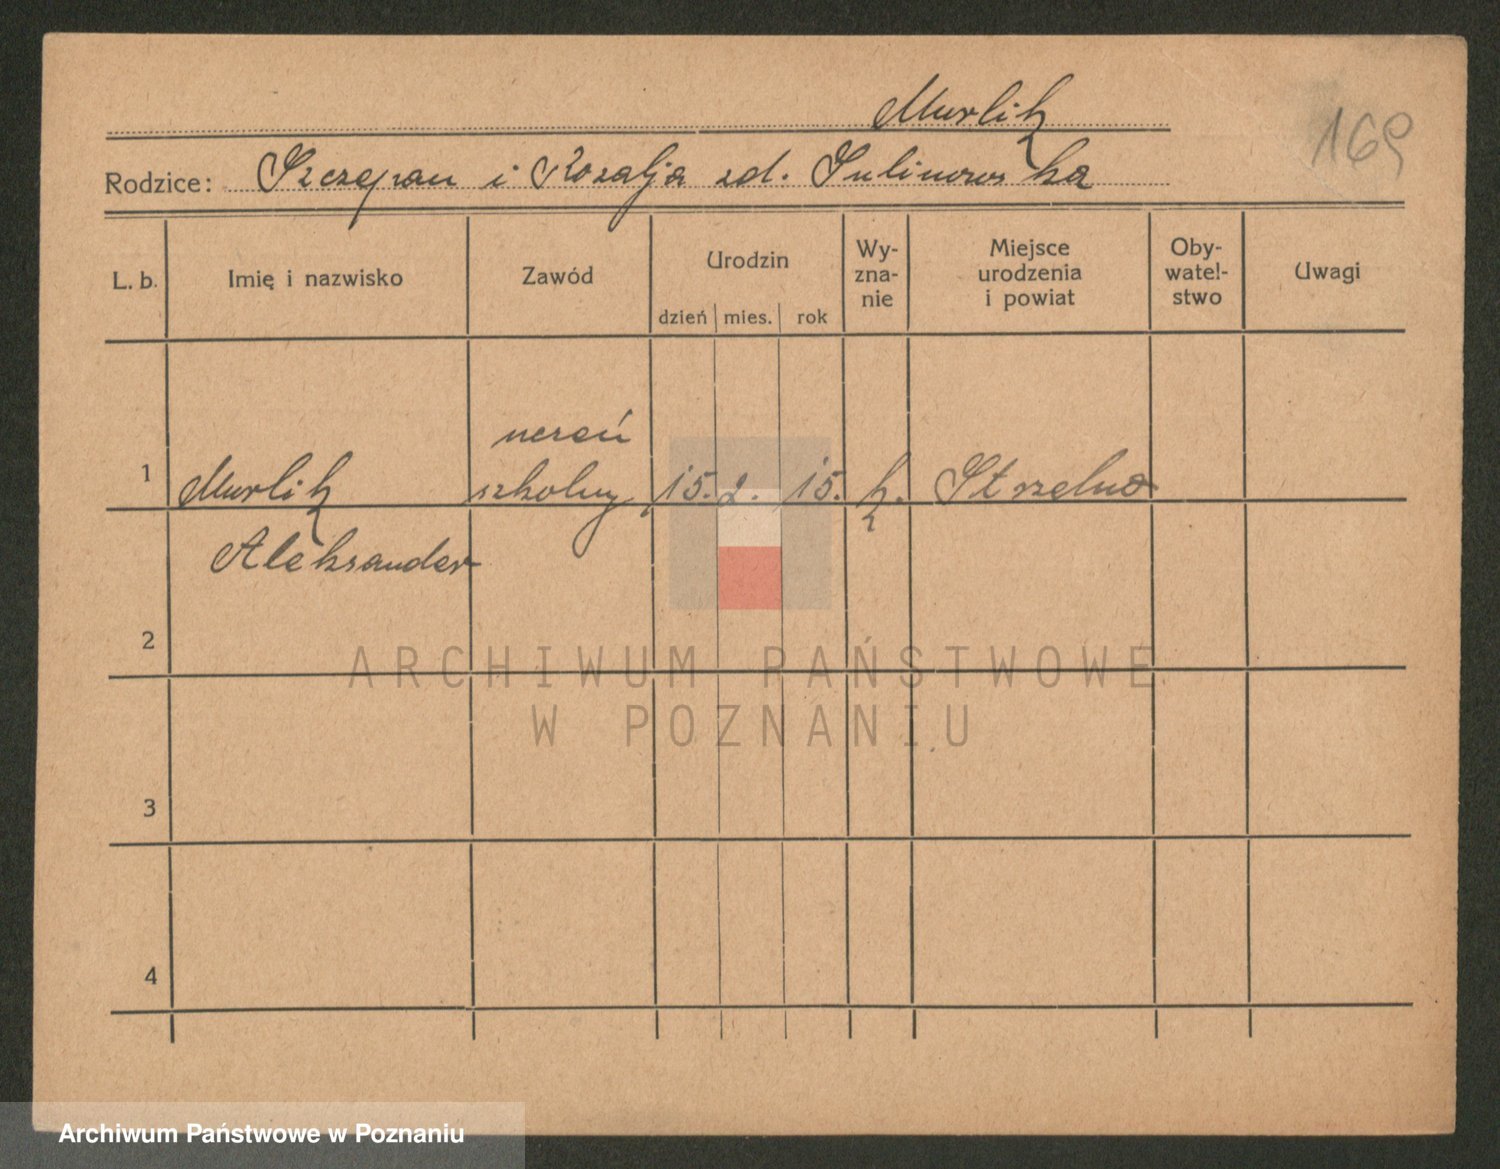 Murlik
169
Rodzice: Szczepan i Rozalja zd. Sulinowska
L. b. Imię i nazwisko Zawód Urodzin Wy-zna-nie Miejsce urodzenia i powiat Oby-watel-stwo Uwagi
dzień mies. rok
uczeń
1 Murlik szkolny 15. 2. 15. k. Strzelno
Aleksander
2
ARCHIWUM PAŃSTWOWE
W POZNANIU
3
4
Archiwum Państwowe w Poznaniu